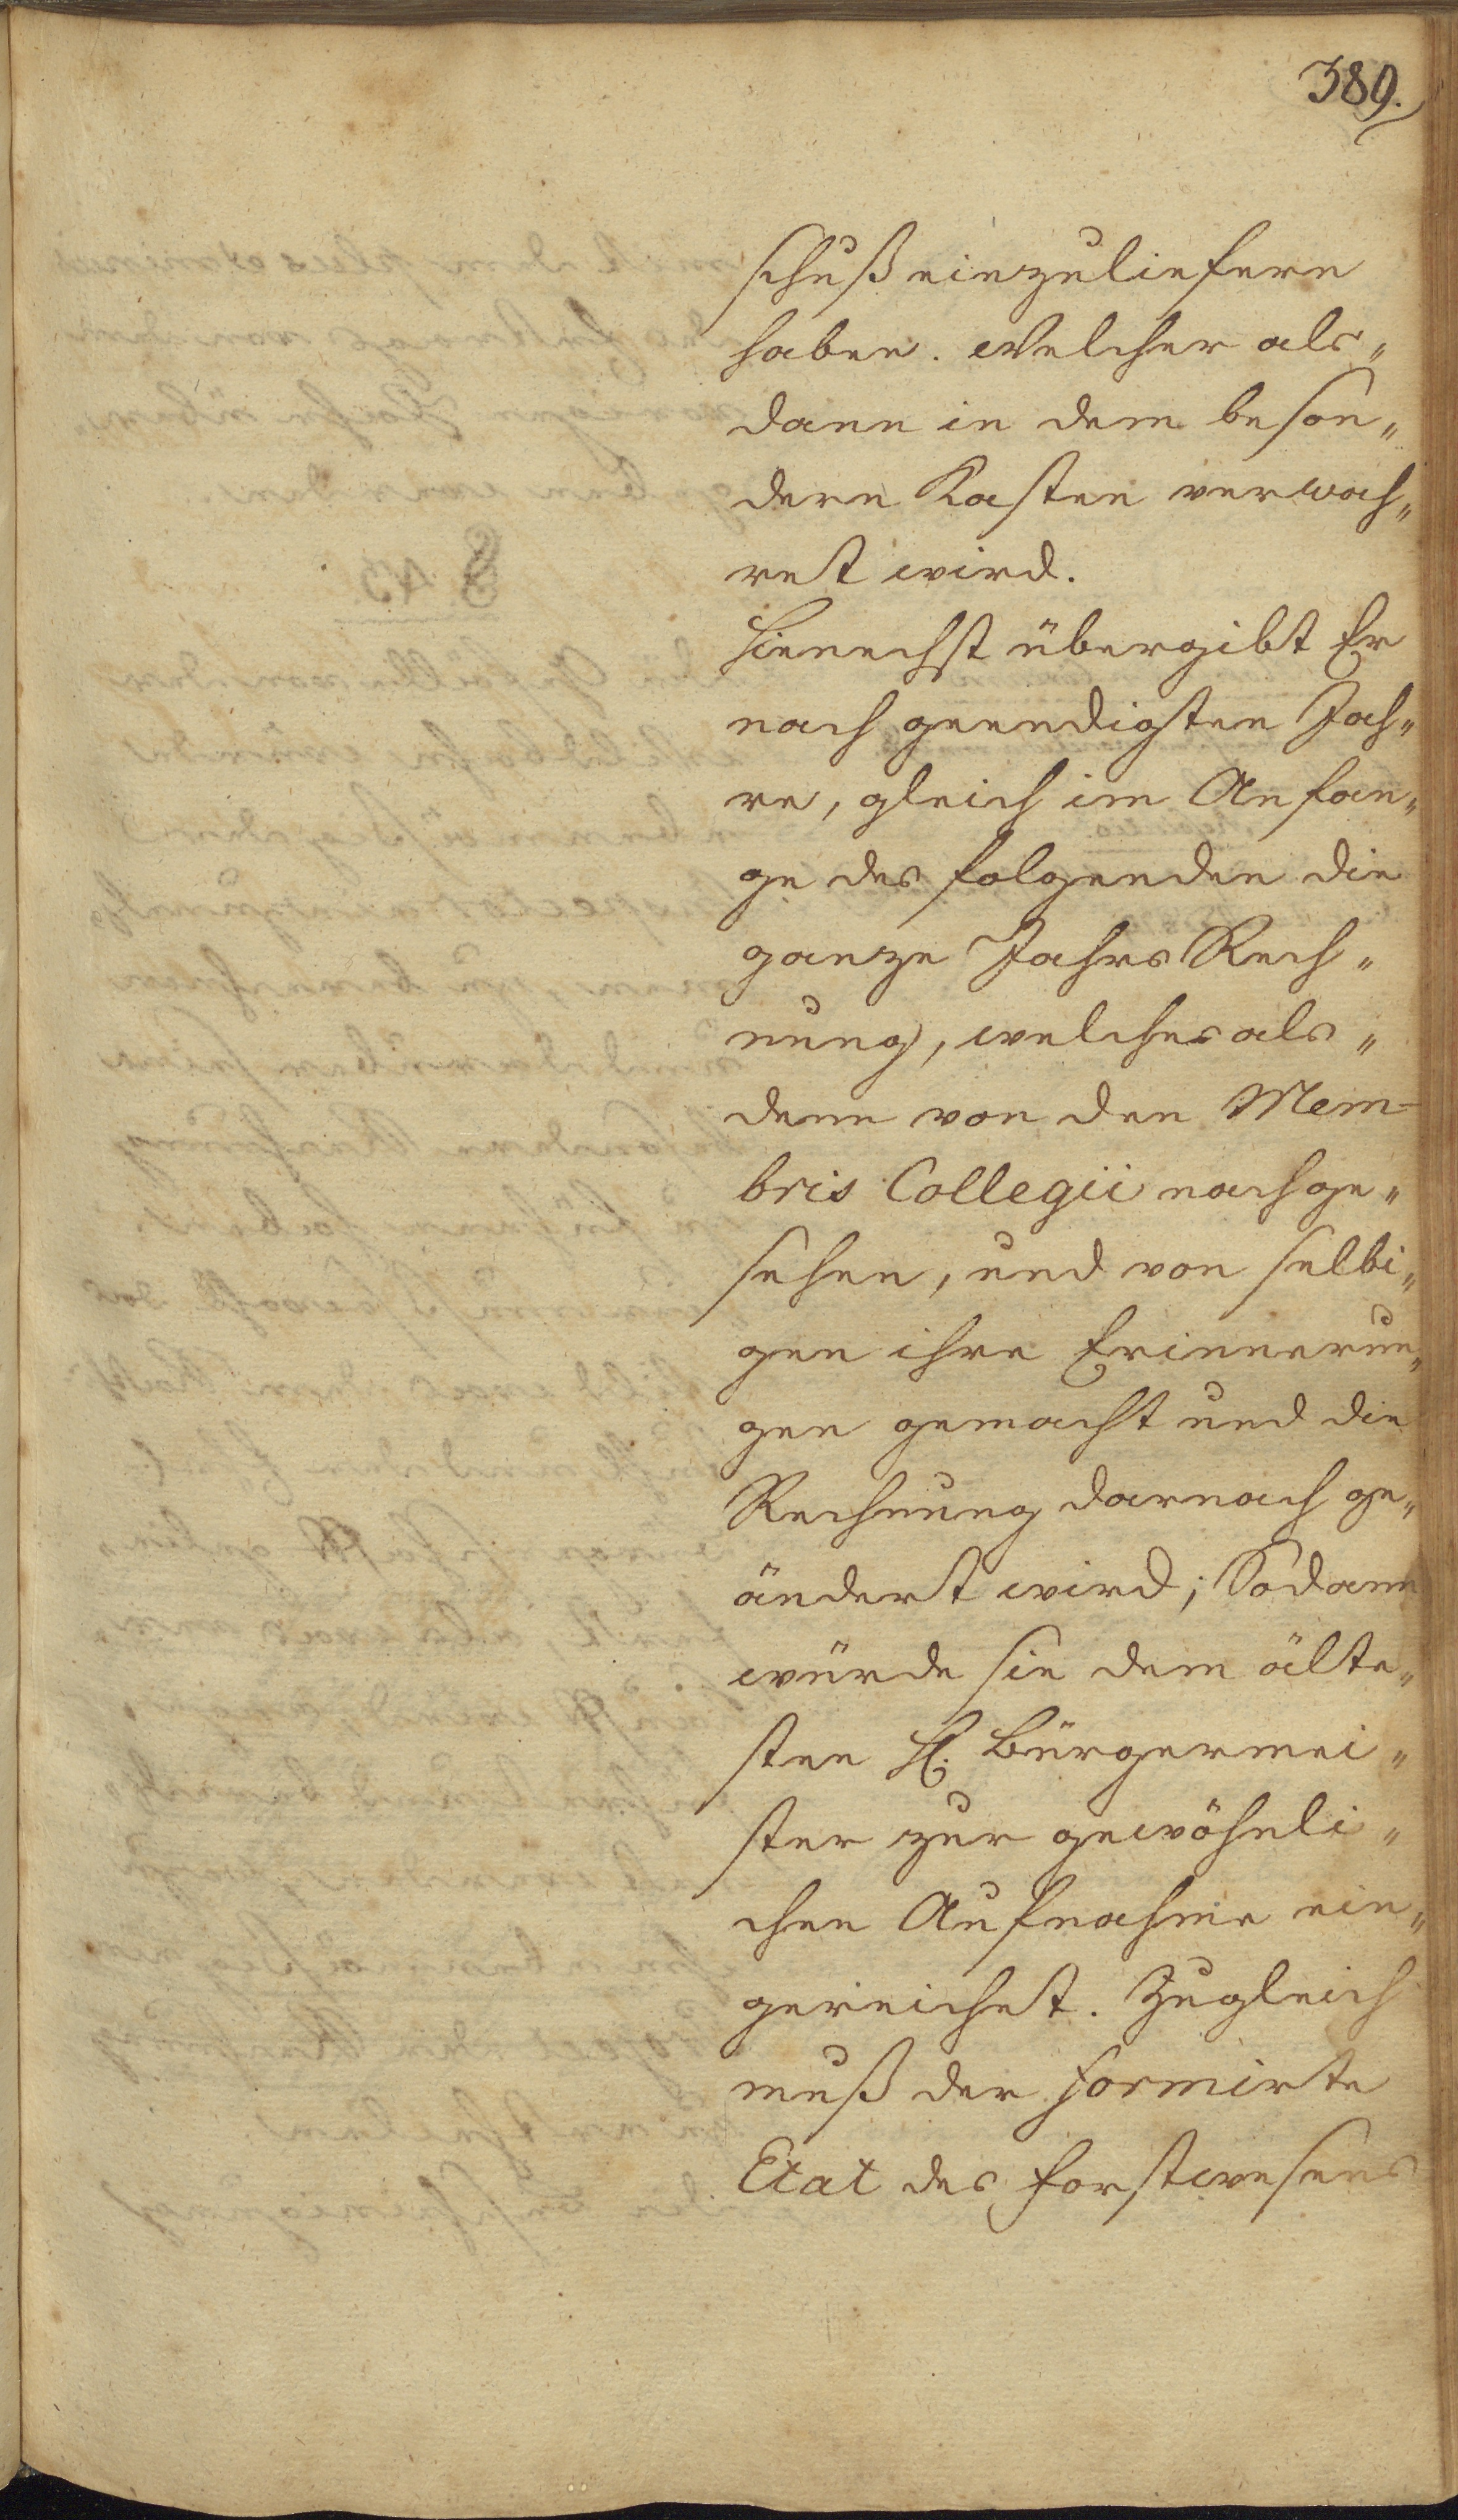 389.
schuß einzuliefern
haben. Welcher als„
dann in dem beson„
dern Kasten verwah„
ret wird.
Hienechst übergibt Er
nach geendigten Jah„
re, gleich im Anfan„
ge des folgenden die
ganze Jahrs Rech„
nung, welches als„
denn von den Mem-
bris Collegii nachge„
sehen, und von selbi„
gen ihre Erinnerun„
gen gemacht und die
Rechnung darnach ge„
ändert wird; Sodann
würde sie dem älte„
sten H. Bürgermei„
ster zur gewöhnli„
chen Aufnahme ein„
gereichet. Zugleich
muß der formirte
Etat des Forstwesens